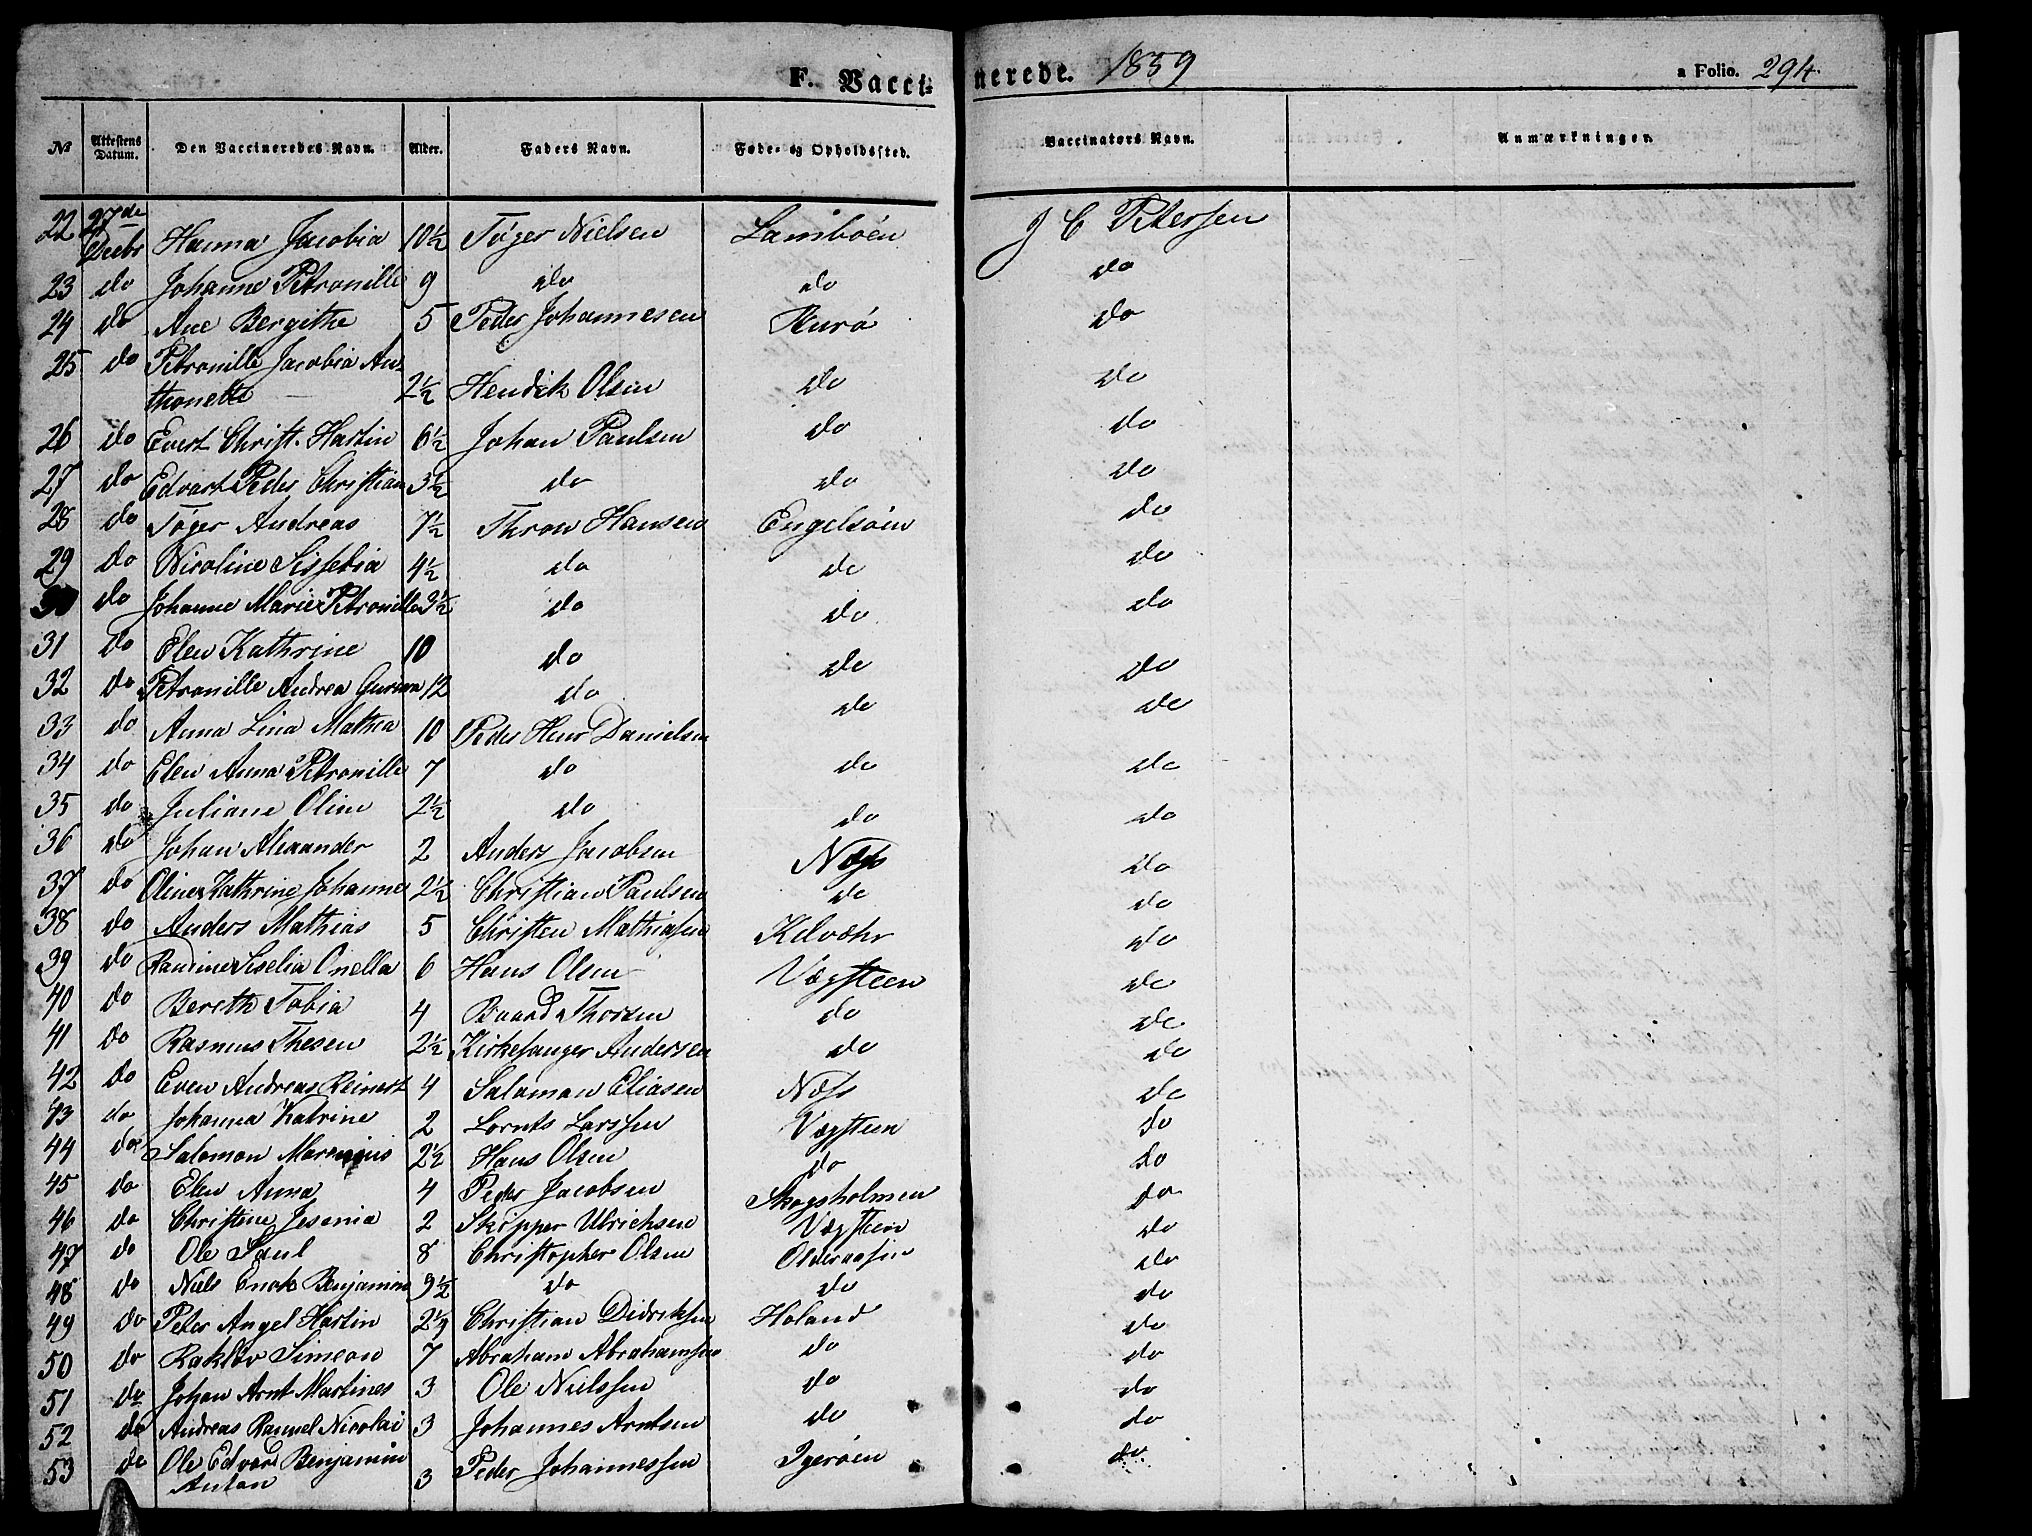 F. Vacci-nerede. 1839 a Folio. 294.
No Attestens Datum. Den Vaccineredes Navn. Alder. Faders Navn. Føde- og Opholdssted. Vaccinators Navn. Anmærkninger.
22 27de Decbr Hanna Jacobia 10½ Tøger Nielsen Lamøen J C Petersen
23 do Johanne Petronille 9 do do do
24 do Ane Bergithe 5 Peder Johannesen Kurø do
25 do Petronille Jacobia An-
thonette 2½ Hendrik Olsen do do
26 do Evert Christ. Hartin 6½ Johan Paulsen do do
27 do Edvart Peder Christian 3½ do do do
28 do Tøger Andreas 7½ Thron Hansen Engelsøen do
29 do Nicoline Sissebia 4½ do do do
30 do Johanne Marie Petronille 3½ do do do
31 do Elen Kathrine 10 do do do
32 do Petronille Andrea Gurina 12 do do do
33 do Anna Lina Mathea 10 Peder Henr Danielsen
34 do Elen Anna Petronille 7 do do do
35 do Juliane Oline 2½ do do do
36 do Johan Alexander 2 Anders Jacobsen Næss do
37 do Oline Kathrine Johanne 2½ Christian Paulsen do do
38 do Anders Mathias 5 Christen Mathiassen Kilvæhr do
39 do Randine Siselia Onella 6 Hans Olsen Vægsteen do
40 do Bereth Tobia 4 Baard Thorsen do do
41 do Rasmus Thesen 2½ Kirkesanger Andersen do do
42 do Even Andreas Reinert 4 Salamon Eliasen Næss do
43 do Johanna Katrine 2 Lornts Larssen Vægsteen do
44 do Salomon Marenius 2½ Hans Olsen do do
45 do Elen Anna 4 Peder Jacobsen Skogsholmen do
46 do Christine Jesenia 2 Skipper Ulrichsen Vægsteen do
47 do Ole Paul 8 Christopher Olsen Olderaasen do
48 do Niels Enok Benjamin 9½ do do do
49 do Peter Angel Hartin 2½ Christian Didriksen Holand do
50 do Rakløv Simeon 7 Abraham Abrahamsen do do
51 do Johan Arnt Martines 3 Ole Nielssen do do
52 do Andreas Rannel Nicolai 3 Johannes Arntsen do do
53 do Ole Edvard Benjamin
Anton 3 Peder Johannessen Igerøen do